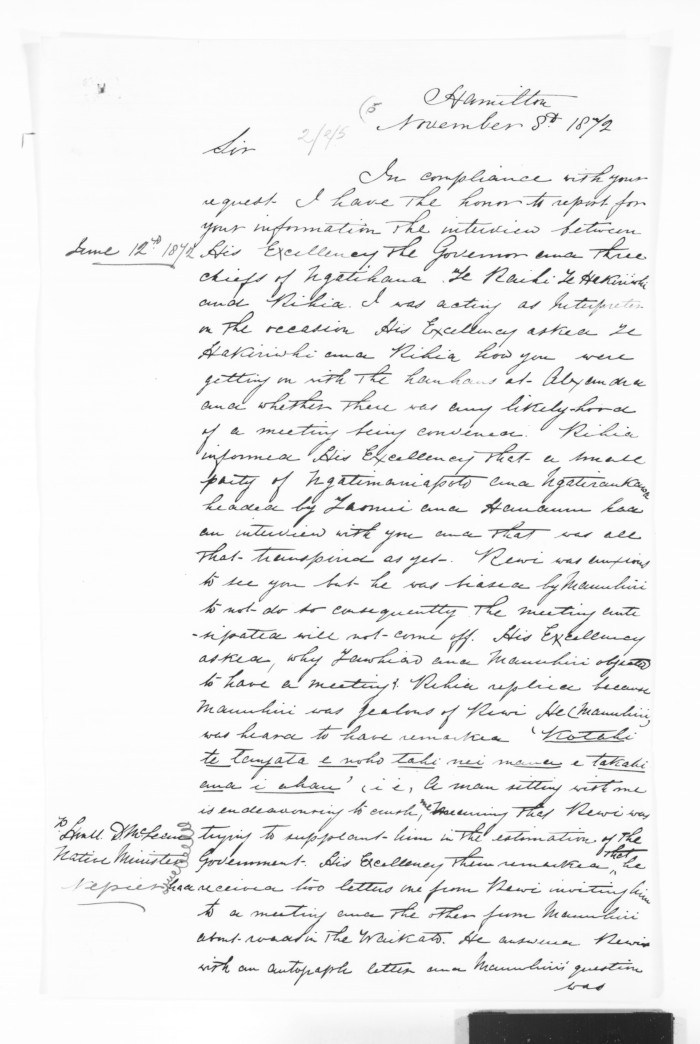 Hamilton
(5
2/2/5
November 8th 1872
Sir
In compliance with your
request I have the honor to report for
your information the interview between
June 12th 1872
His Excellency the Governor and three
chiefs of Ngatihaua Te Raihi Te Hakiriwhi
and Rihia. I was acting as Interpreter
on the occasion His Excellency asked Te
Hakiriwhi and Rihia how you were
getting on with the hauhaus at Alexandra
and whether there was any likely-hood
of a meeting being convened. Rihia
informed His Excellency that a small
party of Ngatimaniapoto and Ngatiraukawa
headed by and Hauauru had
an interview with you and that was all
that transpired as yet. Rewi was anxious
to see you but he was biased by Manuhiri
to not do so consequently the meeting ante
-sipated will not come off. His Excellency
asked, why Tawhiao and Manuhiri objected
to have a meeting? Rihia replied because
Manuhiri was jealous of Rewi He (Manuhiri)
was heard to have remarked 'Kotahi
te tangata e noho tahi nei maua e takahi
ana i ahau', i.e, A man sitting with me
is endeavouring to crush me meaning that Rewi was
trying to supplant him in the estimation of the
Government. His Excellency then remarked that he
had received two letters one from Rewi inviting him
to a meeting and the other from Manuhiri
about roads in the Waikato. He answered Rewis
with an autograph letter and Manuhiri's question
was
To Honll. D McLean
Native Minister
Napier